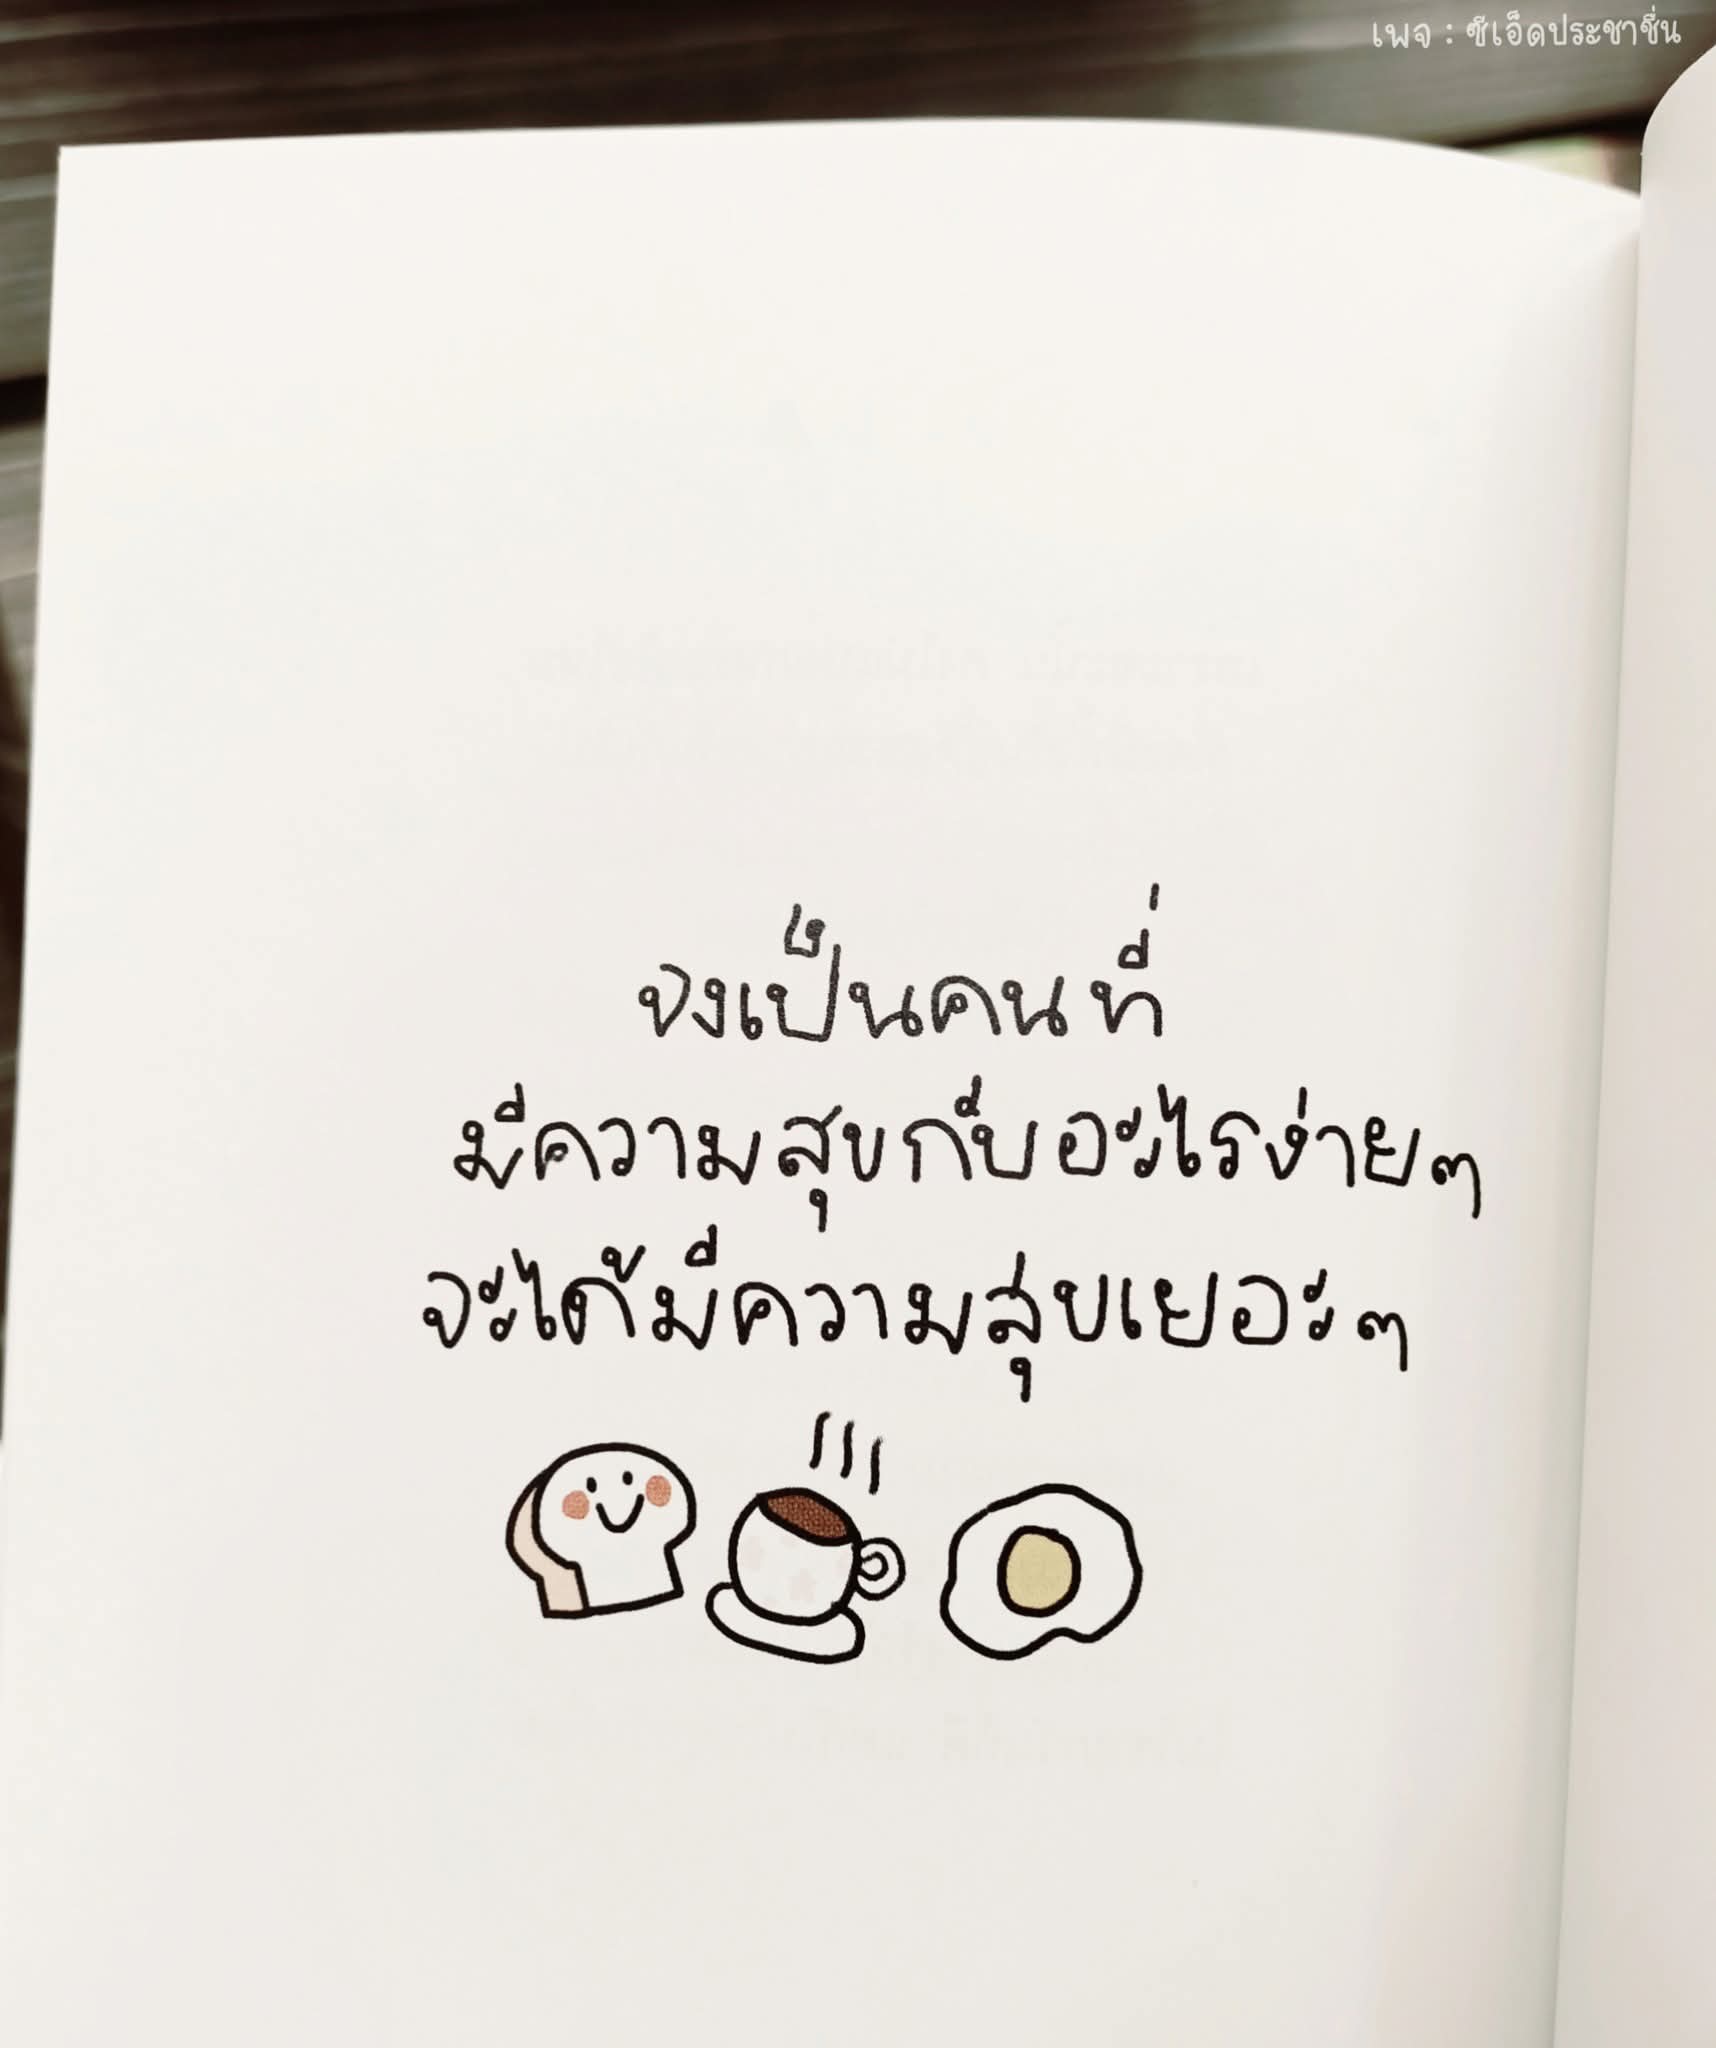 เพจ : ซีเอ็ดประชาชื่น
จงเป็นคนที่
มีความสุขกับอะไรง่ายๆ
จะได้มีความสุขเยอะๆ